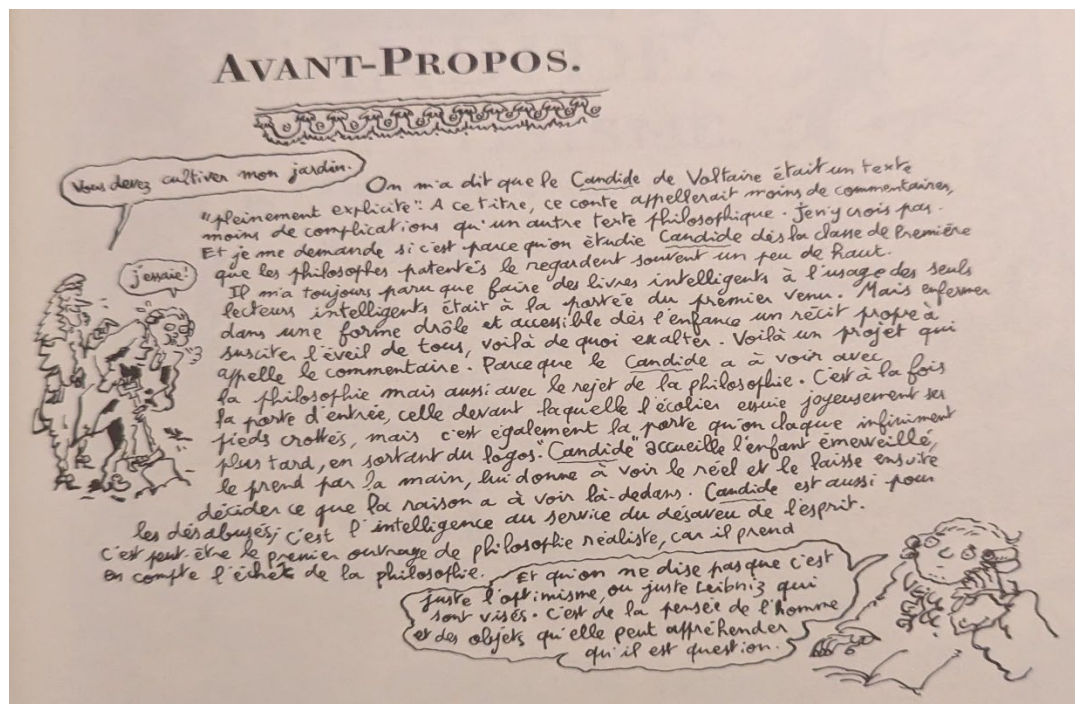 AVANT-PROPOS.
Vous devez cultiver mon jardin.
j'essaie!
On m'a dit que le Candide de Voltaire était un texte
"pleinement explicite". A ce titre, ce conte appellerait moins de commentaires,
moins de complications qu'un autre texte philosophique. Je n'y crois pas.
Et je me demande si c'est parce qu'on étudie Candide dès la classe de Première
que les philosophes patentés le regardent souvent un peu de haut.
Il m'a toujours paru que faire des livres intelligents à l'usage des seuls
lecteurs intelligents était à la portée du premier venu. Mais enfermer
dans une forme drôle et accessible dès l'enfance un récit propre à
susciter l'éveil de tous, voilà de quoi exalter. Voilà un projet qui
appelle le commentaire. Parce que le Candide a à voir avec
la philosophie mais aussi avec le rejet de la philosophie. C'est à la fois
la porte d'entrée, celle devant laquelle l'écolier essuie joyeusement ses
pieds crottés, mais c'est également la porte qu'on claque infiniment
plus tard, en sortant du logos. "Candide" accueille l'enfant émerveillé,
le prend par la main, lui donne à voir le réel et le laisse ensuite
décider ce que la raison a à voir là-dedans. Candide est aussi pour
les désabusés; c'est l'intelligence au service du désaveu de l'esprit.
C'est peut-être le premier ouvrage de philosophie réaliste, car il prend
en compte l'échec de la philosophie.
Et qu'on ne dise pas que c'est
juste l'optimisme, ou juste Leibniz qui
sont visés. C'est de la pensée de l'homme
et des objets qu'elle peut appréhender
qu'il est question.